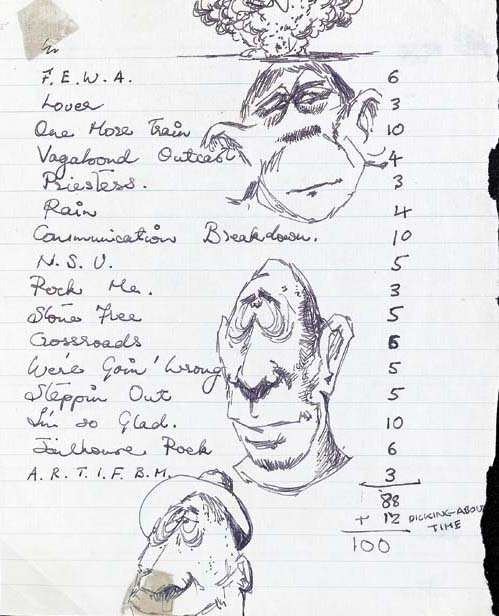 F.E.W.A. 6
Lover 3
One More Train 10
Vagabond Outcast 4
Priestess. 3
Rain 4
Communication Breakdown. 10
N.S.U. 5
Rock Me. 3
Stone Free 5
Crossroads 6
We're Goin' Wrong 5
Steppin Out 5
I'm so Glad. 10
Jailhouse Rock 6
A.R.T.I.F.B.M. 3
88
+ 12 DICKING-ABOUT TIME
100